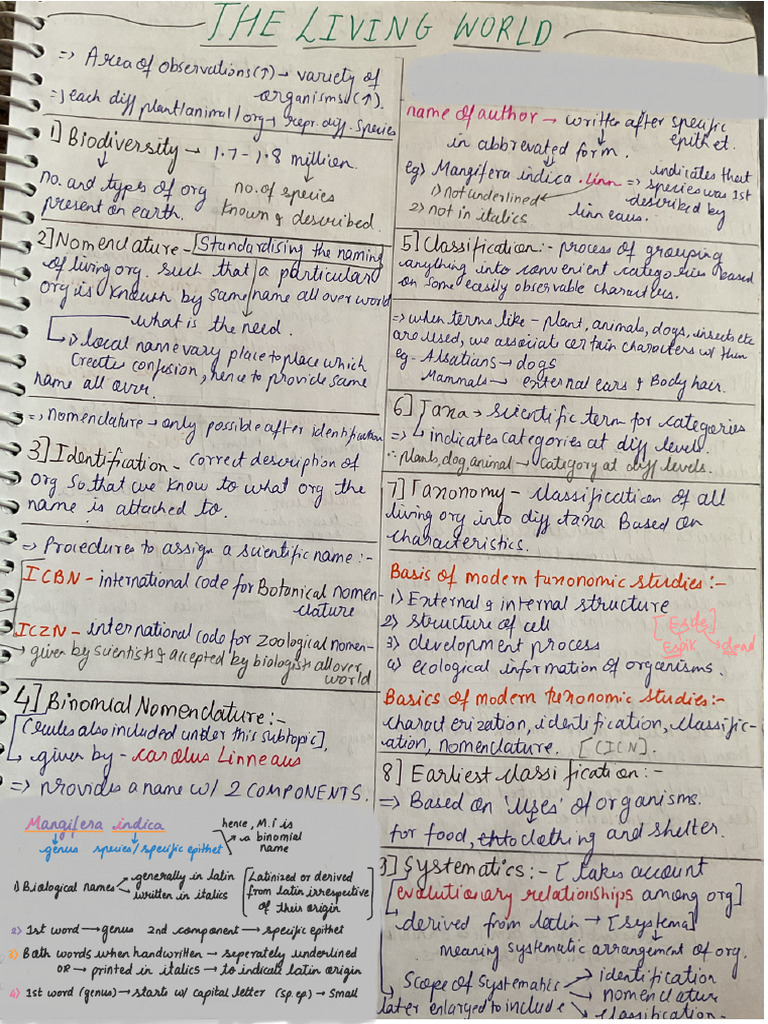 THE LIVING WORLD
=> Area of observations(↑) → variety of
organisms(↑).
=> each diff plant/animal/org → repr. diff. species
1] Biodiversity → 1.7 - 1.8 million.
no. and types of org
present on earth.
no. of species
known & described.
2] Nomenclature - Standardising the naming
of living org. such that a particular
org is known by same name all over world
what is the need.
↳ local name vary place to place which
create confusion, hence to provide same
name all over.
=> nomenclature → only possible after identification
3] Identification - correct description of
org so that we know to what org the
name is attached to.
=> Procedures to assign a scientific name :-
ICBN - international code for Botanical nomen-
clature
ICZN - international code for Zoological nomen-
→ given by scientists & accepted by biologists all over
world
4] Binomial Nomenclature :-
[rules also included under this subtopic],
↳ given by - Carolus Linneaus
=> provides a name w/ 2 COMPONENTS.
Mangifera indica
genus species/specific epithet
hence, M.i is
a binomial
name
1) Biological names
generally in latin
written in italics
[Latinized or derived
from latin irrespective
of their origin]
2) 1st word → genus 2nd component → specific epithet
3) Both words when handwritten → seperately underlined
OR → printed in italics → to indicate latin origin
4) 1st word (genus) → starts w/ capital letter (sp. ep) → small
name of author → written after specific
epithet.
in abbrevated form.
eg) Mangifera indica . Linn => indicates that
species was 1st
described by
linneaus.
1) not underlined
2) not in italics
5] Classification :- process of grouping
anything into convenient categories based
on some easily observable characters.
=> when terms like - plant, animals, dogs, insects etc
are used, we associat certain characters w/ them
eg - Alsatians → dogs
Mammals → external ears & Body hair.
6] Taxa → scientific term for categories
=> ↳ indicates categories at diff levels.
∴ plants, dog, animal → category at diff levels.
7] Taxonomy - classification of all
living org into diff taxa Based on
characteristics.
Basis of modern taxonomic studies :-
1) External & internal structure
2) structure of cell
3) development process
4) ecological information of organisms.
[Esde]
Espik → dend
Basics of modern taxonomic studies :-
characterization, identification, classific-
ation, nomenclature. [CICN].
8] Earliest classification :-
=> Based on 'uses' of organisms.
for food, clothing and shelter.
3] Systematics :- [takes account
evolutionary relationships among org]
→ derived from latin → [systema]
meaning systematic arrangement of org.
↳ Scope of systematic
later enlarged to include
identification
nomenclature
classification.